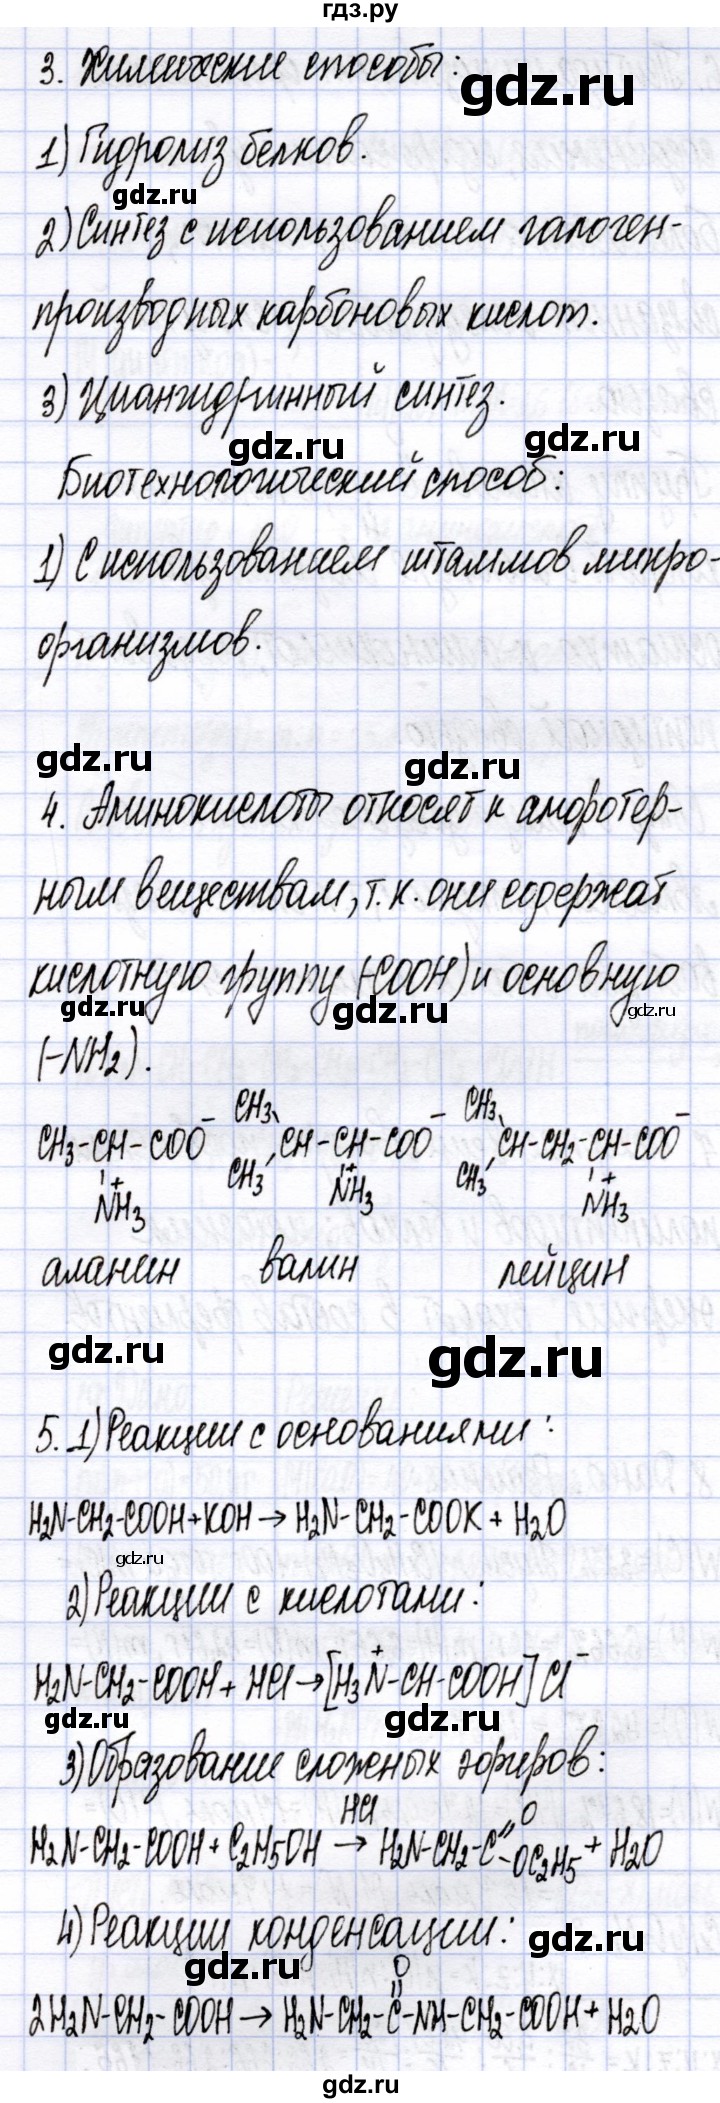 гдз.ру
3. Химические способы:
gdz.ru
1) Гидролиз белков.
gdz.ru
2) Синтез с использованием галоген-
производных карбоновых кислот.
3) Циангидринный синтез.
gdz.ru
gdz.ru
Биотехнологический способ:
1) С использованием штаммов микро-
организмов.
gdz.ru
gdz.ru
4. Аминокислоты относят к амфотер-
ным веществам, т.к. они содержат
кислотную группу (-COOH) и основную
gdz.ru
gdz.ru
gdz.ru
(-NH₂).
CH₃-CH-COO⁻ CH₃ CH₃ CH-CH-COO⁻ CH₃ CH₃ CH-CH₂-CH-COO⁻
⁺NH₃ ⁺NH₃ ⁺NH₃
аланин валин лейцин
gdz.ru
gdz.ru
5. 1) Реакции с основаниями:
H₂N-CH₂-COOH+KOH → H₂N-CH₂-COOK + H₂O
gdz.ru
2) Реакции с кислотами:
H₂N-CH₂-COOH + HCl → [H₃N⁺-CH-COOH]Cl⁻
gdz.ru
gdz.ru
3) Образование сложных эфиров:
HCl O
H₂N-CH₂-COOH + C₂H₅OH → H₂N-CH₂-C-OC₂H₅ + H₂O
4) Реакции конденсации:
gdz.ru
gdz.ru
O
2H₂N-CH₂-COOH → H₂N-CH₂-C-NH-CH₂-COOH + H₂O
gdz.ru